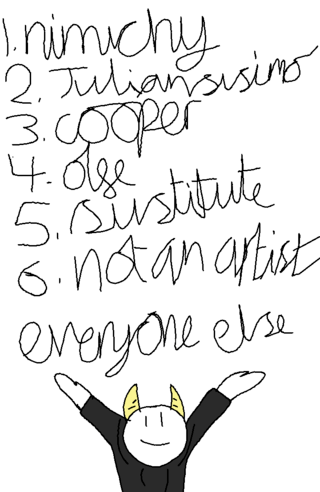 1. nimichy
2. Juliansisimo
3. cooper
4. olse
5. sustitute
6. not an artist
everyone else